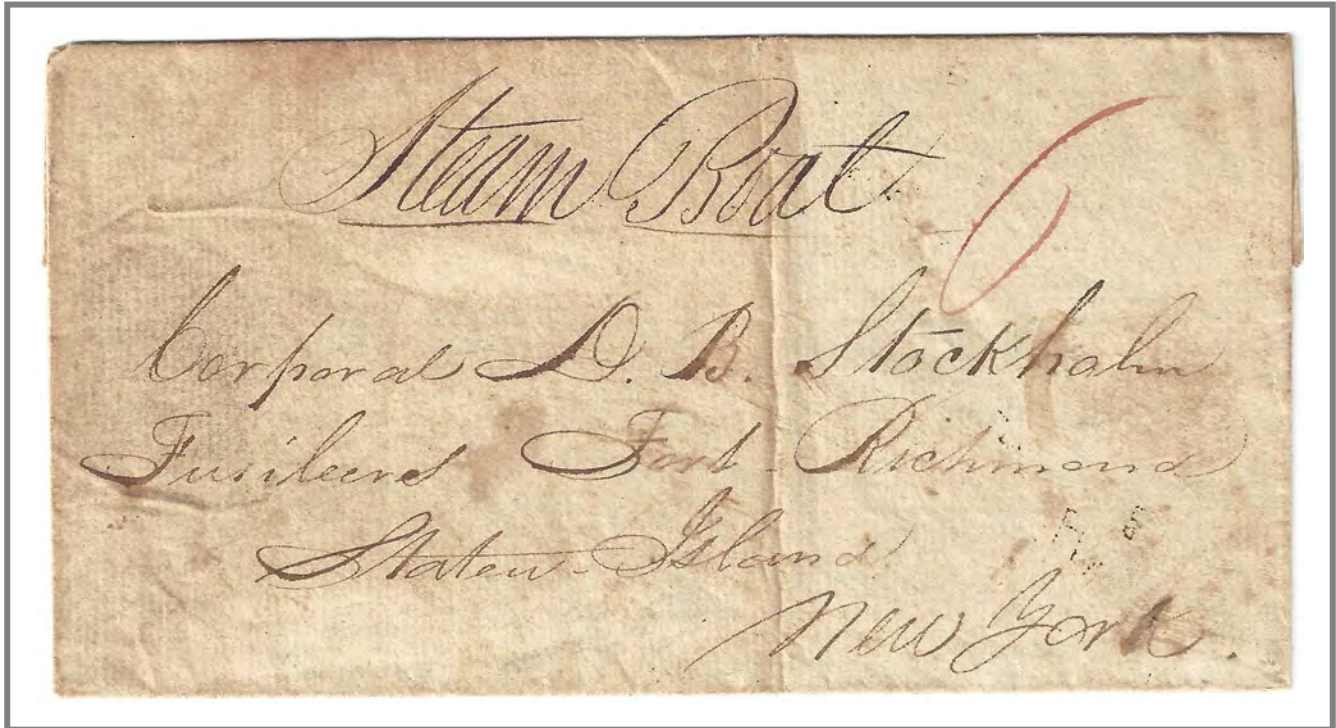 Steam Boat
6
Corporal D. B. Stockholm
Fusileers Fort Richmond
Staten-Island
New York.